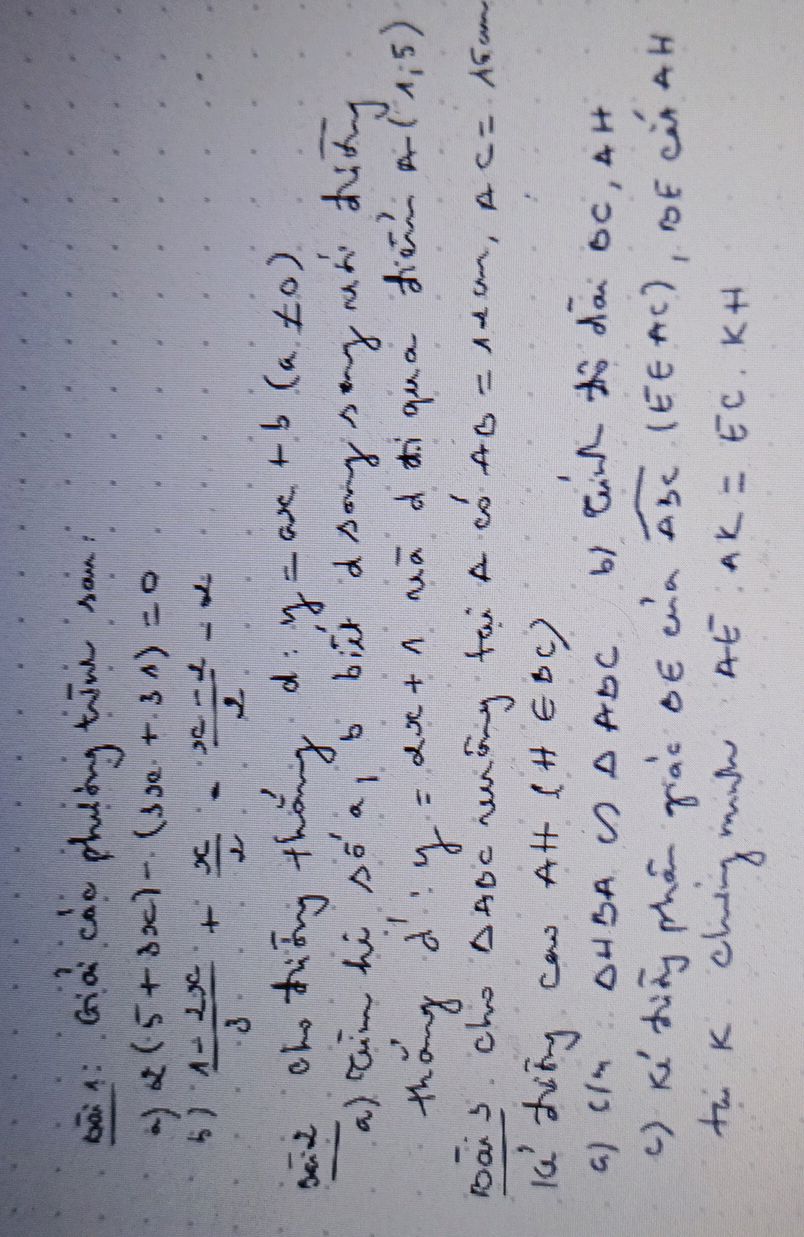 Bài 1: Giải các phương trình sau:
a) 2(5+3x)-(3x+31)=0
b) \frac{1-2x}{3} + \frac{x}{2} = \frac{x-2}{2} - 2
Bài 2 cho đường thẳng d: y = ax + b (a ≠ 0)
a) Tìm hệ số a, b biết d song song với đường
thẳng d': y = 2x + 1 và d đi qua điểm A(1;5)
Bài 3. cho ΔABC vuông tại A có AB = 12cm, AC =
Kẻ đường cao AH (H ∈ BC)
a) C/m: ΔHBA ∽ ΔABC b) Tính độ dài BC, AH
c) Kẻ đường phân giác BE của ABC (E ∈ AC), BE cắt AH
tại K chứng minh AE . AK = EC . KH